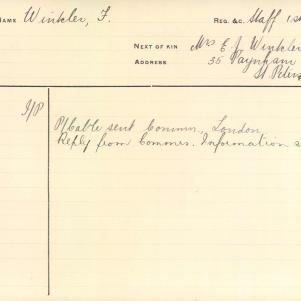 NAME Winkler, F. REG. &C. Staff 1st
NEXT OF KIN Mrs E. J. Winkler
ADDRESS 35 Paynham
St Peters
P/Cable sent Commn. London
Reply from Commrs. Information